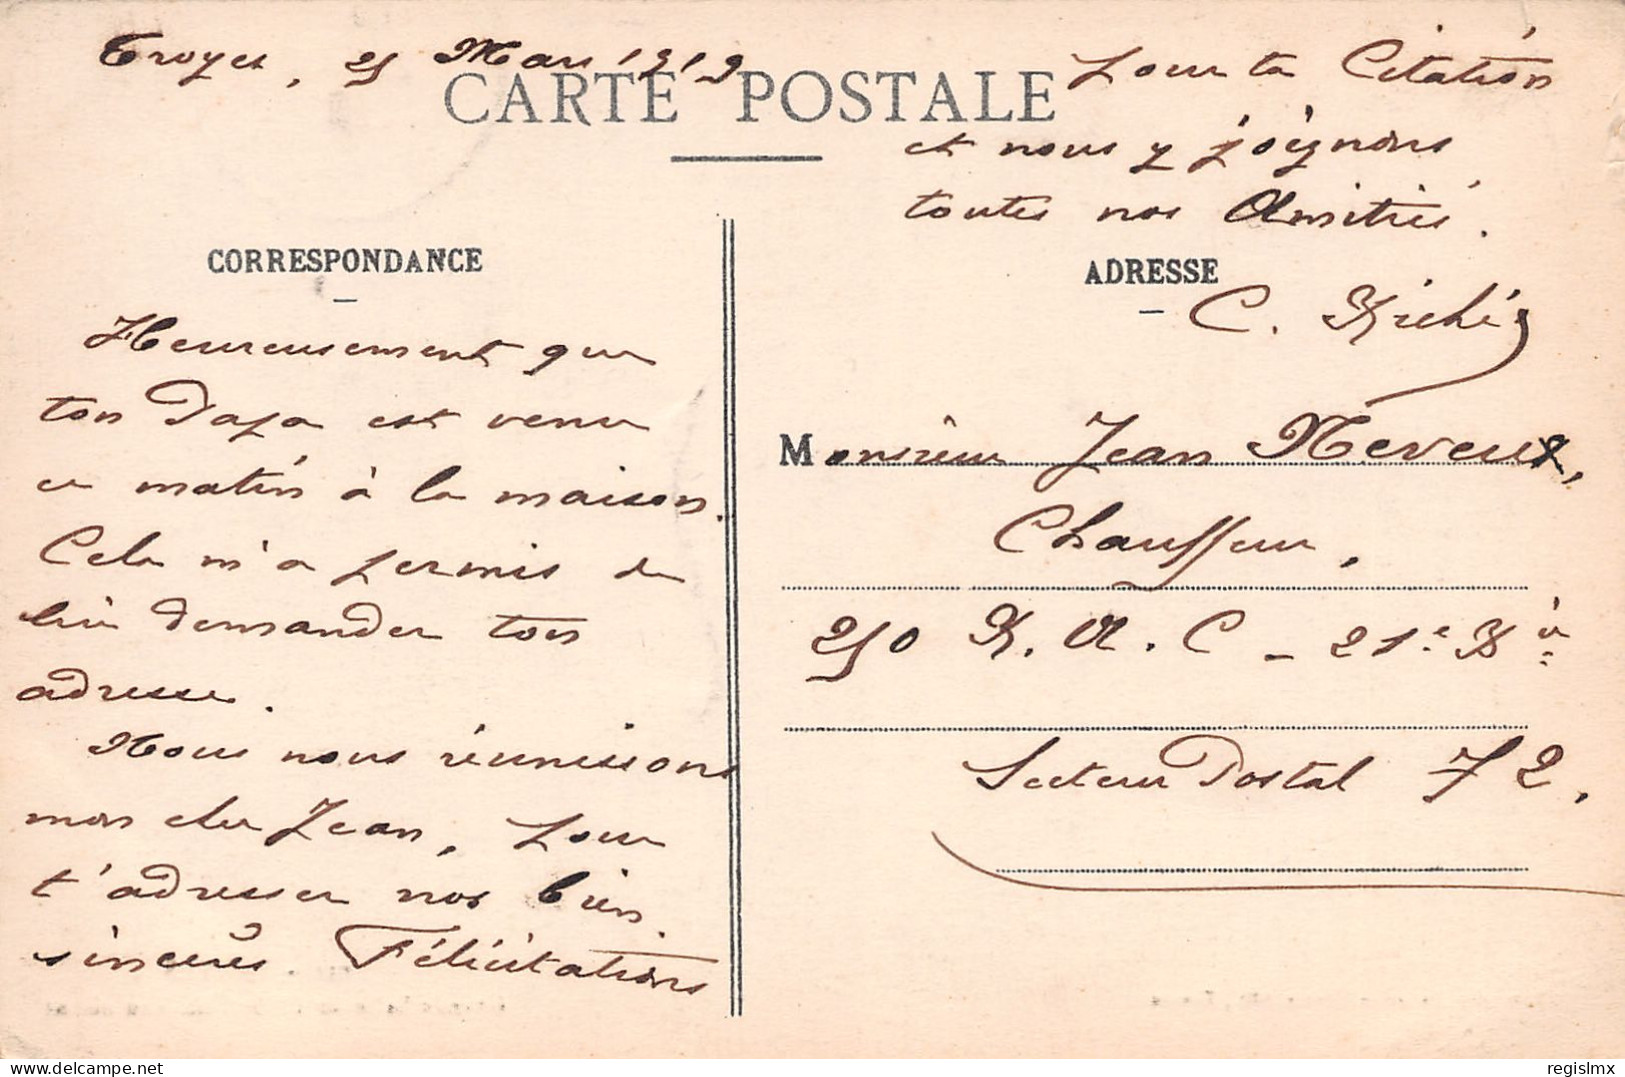 Troyes, 25 Mars 1919
CARTE POSTALE
CORRESPONDANCE
Heureusement que
ton Papa est venu
ce matin à la maison.
Cela m'a permis de
lui demander ton
adresse.
Nous nous réunissons
mon cher Jean, pour
t'adresser nos bien
sincères Félicitations
pour ta Citation
et nous y joignons
toutes nos Amitiés.
ADRESSE
C. Riché
Monsieur Jean Neveux,
Chauffeur.
250 R. A. C - 21e Bie
Secteur Postal 72.
regislmx